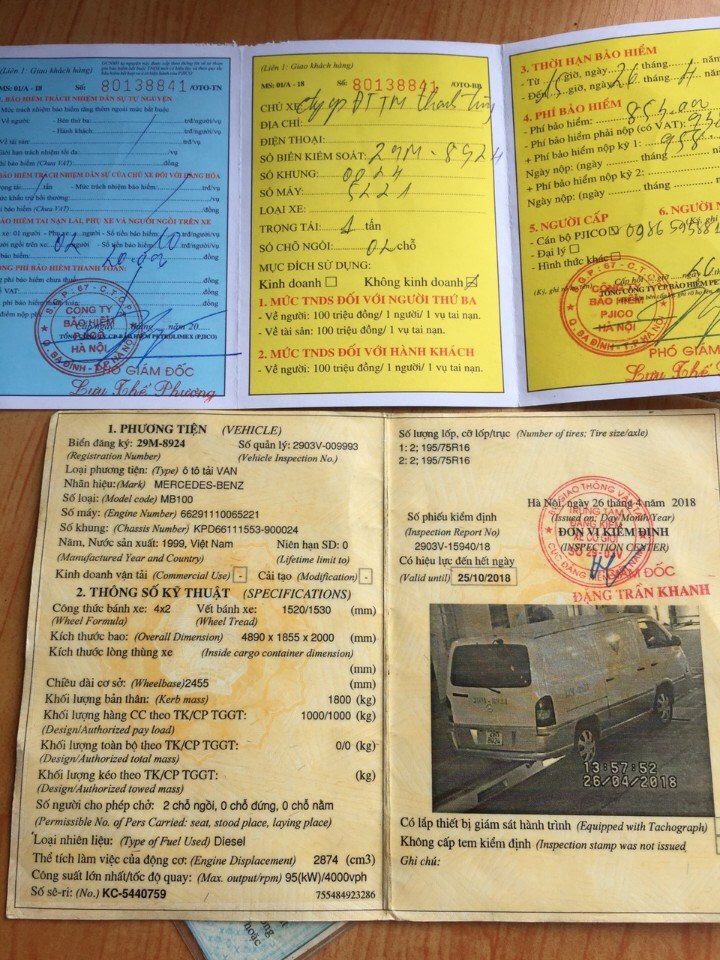 (Liên 1: Giao khách hàng)
MS: 01/A - 18 Số: 80138841 /OTO-TN
BẢO HIỂM TRÁCH NHIỆM DÂN SỰ TỰ NGUYỆN
Mức trách nhiệm bảo hiểm tăng thêm ngoài mức bắt buộc
- Về người: - Bên thứ ba: trđ/người/vụ
- Hành khách: trđ/người/vụ
- Về tài sản: trđ/vụ
Giới hạn trách nhiệm tối đa: trđ/vụ
Phí bảo hiểm (Chưa VAT): đồng
BẢO HIỂM TRÁCH NHIỆM DÂN SỰ CỦA CHỦ XE ĐỐI VỚI HÀNG HÓA
Trọng tải: tấn - Mức trách nhiệm bảo hiểm: trđ/vụ
Mức khấu trừ bồi thường: trđ/vụ
Phí bảo hiểm (Chưa VAT): đồng
BẢO HIỂM TAI NẠN LÁI, PHỤ XE VÀ NGƯỜI NGỒI TRÊN XE
xe: 01 người - Phụ xe: người - Số tiền bảo hiểm: 10 trđ/người/vụ
người ngồi trên xe: 02 người - Số tiền bảo hiểm: trđ/người/vụ
bảo hiểm: 20.000 đồng
TỔNG PHÍ BẢO HIỂM THANH TOÁN:
phí bảo hiểm chưa thuế: đồng
đồng
CÔNG TY
BẢO HIỂM
PJICO
HÀ NỘI
Q. BA ĐÌNH - T.P HÀ NỘI
PHÓ GIÁM ĐỐC
Lưu Thế Phương
(Liên 1: Giao khách hàng)
MS: 01/A - 18 Số: 80138841 /OTO-BB
CHỦ XE: Cty CP ĐT TM
ĐỊA CHỈ:
ĐIỆN THOẠI:
SỐ BIỂN KIỂM SOÁT: 29M - 8924
SỐ KHUNG: 0024
SỐ MÁY: 5221
LOẠI XE:
TRỌNG TẢI: 1 tấn
SỐ CHỖ NGỒI: 02 chỗ
MỤC ĐÍCH SỬ DỤNG:
Kinh doanh Không kinh doanh
1. MỨC TNDS ĐỐI VỚI NGƯỜI THỨ BA
- Về người: 100 triệu đồng/ 1 người/ 1 vụ tai nạn.
- Về tài sản: 100 triệu đồng/ 1 vụ tai nạn.
2. MỨC TNDS ĐỐI VỚI HÀNH KHÁCH
- Về người: 100 triệu đồng/ 1 người/ 1 vụ tai nạn.
3. THỜI HẠN BẢO HIỂM
- Từ giờ, ngày tháng
- Đến giờ, ngày 26 tháng 4
4. PHÍ BẢO HIỂM
- Phí bảo hiểm: 853.000
- Phí bảo hiểm phải nộp (có VAT):
+ Phí bảo hiểm nộp kỳ 1:
Ngày nộp: (ngày tháng
+ Phí bảo hiểm nộp kỳ 2:
Ngày nộp: (ngày tháng
5. NGƯỜI CẤP
6. NGƯỜI
- Cán bộ PJICO
- Đại lý
- Hình thức khác
CÔNG TY
BẢO HIỂM
PJICO
HÀ NỘI
Q. BA ĐÌNH - T.P HÀ NỘI
PHÓ GIÁM ĐỐC
Lưu Thế P
1. PHƯƠNG TIỆN (VEHICLE)
Biển đăng ký: 29M-8924 Số quản lý: 2903V-009993
(Registration Number) (Vehicle Inspection No.)
Loại phương tiện: (Type) ô tô tải VAN
Nhãn hiệu: (Mark) MERCEDES-BENZ
Số loại: (Model code) MB100
Số máy: (Engine Number) 66291110065221
Số khung: (Chassis Number) KPD66111553-900024
Năm, Nước sản xuất: 1999, Việt Nam Niên hạn SD: 0
(Manufactured Year and Country) (Lifetime limit to)
Kinh doanh vận tải (Commercial Use) - Cải tạo (Modification) -
2. THÔNG SỐ KỸ THUẬT (SPECIFICATIONS)
Công thức bánh xe: 4x2 Vết bánh xe: 1520/1530 (mm)
(Wheel Formula) (Wheel Tread)
Kích thước bao: (Overall Dimension) 4890 x 1855 x 2000 (mm)
Kích thước lòng thùng xe (Inside cargo container dimension)
(mm)
Chiều dài cơ sở: (Wheelbase) 2455 (mm)
Khối lượng bản thân: (Kerb mass) 1800 (kg)
Khối lượng hàng CC theo TK/CP TGGT: 1000/1000 (kg)
(Design/Authorized pay load)
Khối lượng toàn bộ theo TK/CP TGGT: 0/0 (kg)
(Design/Authorized total mass)
Khối lượng kéo theo TK/CP TGGT: (kg)
(Design/Authorized towed mass)
Số người cho phép chở: 2 chỗ ngồi, 0 chỗ đứng, 0 chỗ nằm
(Permissible No. of Pers Carried: seat, stood place, laying place)
Loại nhiên liệu: (Type of Fuel Used) Diesel
Thể tích làm việc của động cơ: (Engine Displacement) 2874 (cm3)
Công suất lớn nhất/tốc độ quay: (Max. output/rpm) 95(kW)/4000vph
Số sê-ri: (No.) KC-5440759 755484923286
Số lượng lốp, cỡ lốp/trục (Number of tires; Tire size/axle)
1: 2; 195/75R16
2: 2; 195/75R16
Hà Nội, ngày 26 tháng 4 năm 2018
(Issued on: Day/Month/Year)
Số phiếu kiểm định ĐƠN VỊ KIỂM ĐỊNH
(Inspection Report No) (INSPECTION CENTER)
2903V-15940/18
Có hiệu lực đến hết ngày
(Valid until) 25/10/2018
GIÁM ĐỐC
ĐẶNG TRẦN KHANH
29M-8924
13:57:52
26/04/2018
Có lắp thiết bị giám sát hành trình (Equipped with Tachograph)
Không cấp tem kiểm định (Inspection stamp was not issued
Ghi chú: